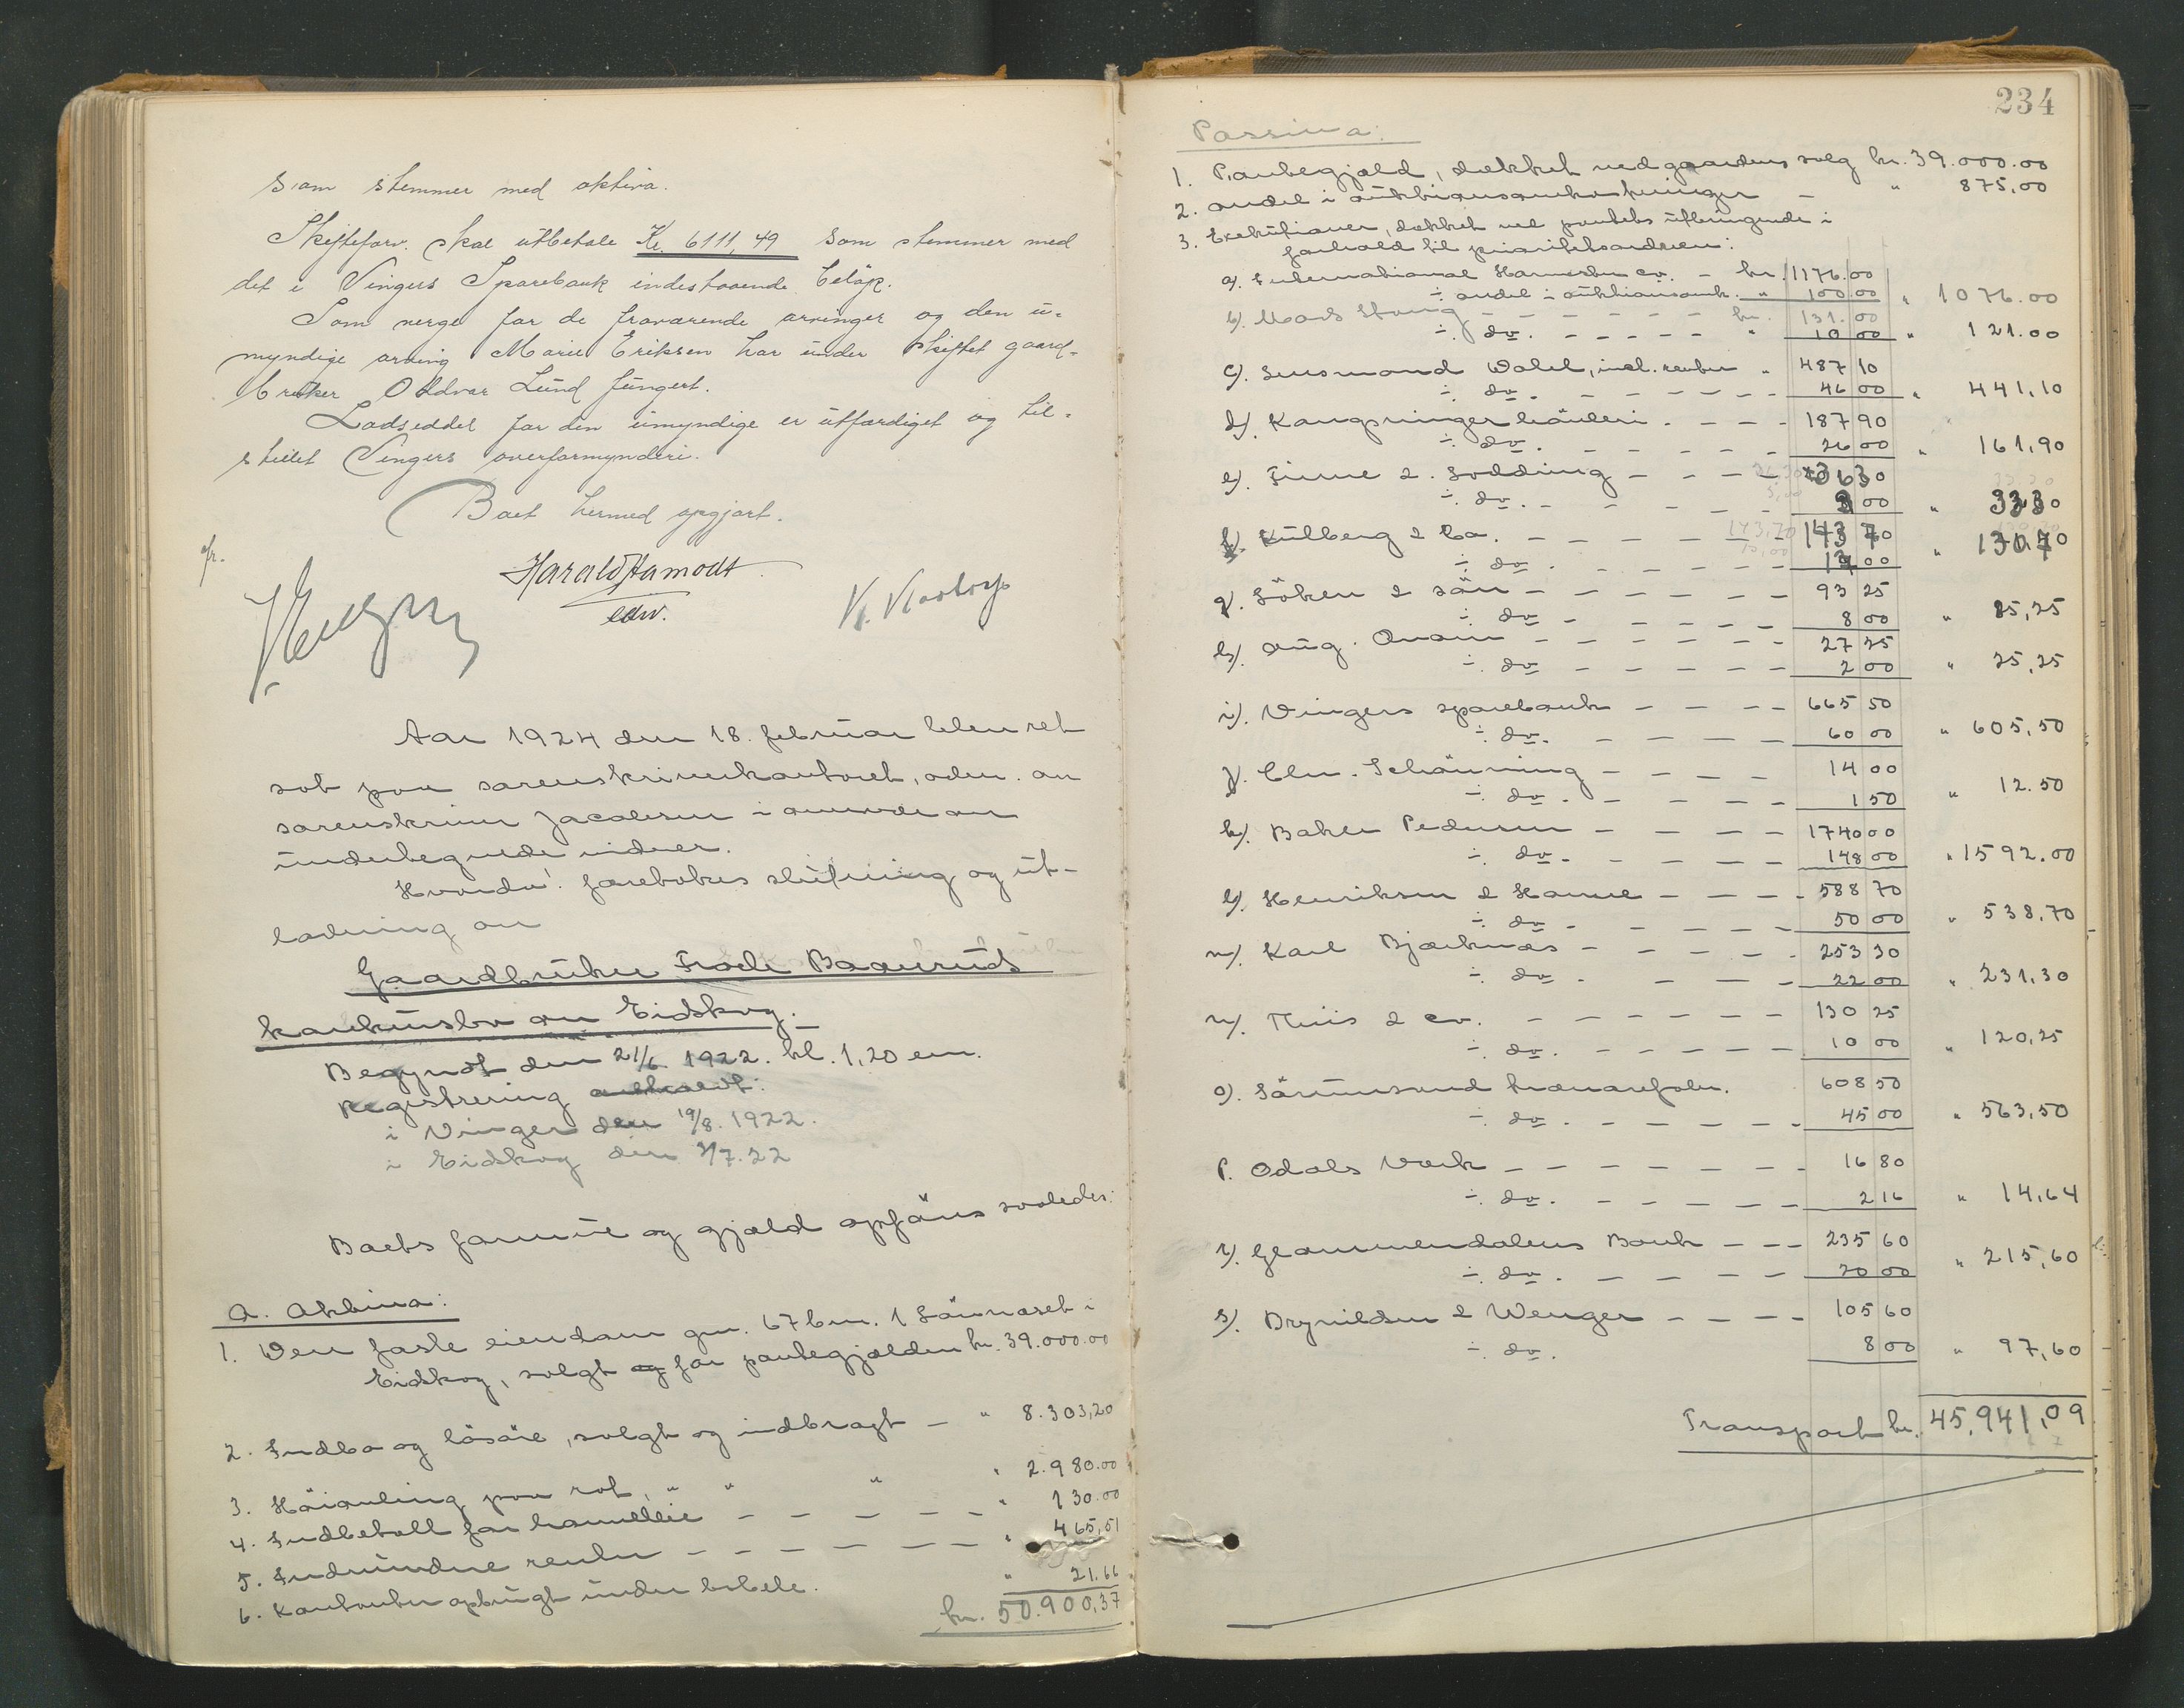 som stemmer med aktiva.
Skifteforv. skal utbetale Kr. 6111,49 som stemmer med
det i Vingers Sparebank indestaaende beløp.
Som verge for de fraværende arvinger og den u-
myndige arving Marie Eriksen har under skiftet gaard-
bruker Oddvar Lund fungert.
Lodseddel for den umyndige er utfærdiget og til-
stillet Vingers overformynderi.
Boet hermed opgjort.
Harald Aamodt
edv.
Aar 1924 den 18. februar blev ret
sat paa sorenskriverkontoret, adm. av
sorenskriver Jacobsen i overvær av
undertegnede vidner.
Hvorda! foretokes slutning og ut-
lodning av
Gaardbruker Frode Baaeruds
konkursbo av Eidskog.
Begyndt den 21/6 1922. kl. 1,20 em.
Registrering avholdt:
i Vinger den 19/8. 1922.
i Eidskog den 3/7.22
Boets formue og gjæld opføres saaledes:
A. Aktiva:
1. Den faste eiendom gnr. 67 bnr. 1 Lønnaset i
Eidskog, solgt og for pantegjælden kr. 39.000.00
2. Indbo og løsøre, solgt og indbragt — " 8.303,20
3. Høiavling paa rot, " " " " 2.980.00
4. Indbetalt for havneleie — — — — — " 130.00
5. Indvundne renter — — — — — — — " 465,51
6. Kontanter opbrugt under bobeh. " 21.66
kr. 50.900,37
234
Passiva:
1. Pantegjæld, dækket ved gaardens salg kr. 39.000.00
2. andel i auktionsomkostninger — " 875,00
3. Exekutioner, dækket ved pantets utbringende i
forhold til prioritetsordren:
a). International Harvester co. — kr. 1176.00
÷ andel i auktionsomk. " 100.00 " 1076.00
b). Mads Stang — — — — — — kr. 131.00
÷ do. — — — — — " 10 00 " 121.00
c). Lensmand Wahl, incl. renter " 487 10
÷ do. — — — — — — 46 00 " 441,10
d). Kongsvinger bakeri. — — — 187 90
÷ do. — — — — — — 26 00 " 161,90
e). Finne & Lødding — — — 36 30
÷ do. — — — — — — 3 00 " 33 30
f). Kulberg & Co. — — — — — — 143 70
÷ do. — — — — — 13 00 " 130,70
g). Løken & søn — — — — — — 93 25
÷ do. — — — — — 8 00 " 85,25
h). Aug. Qvam — — — — — — 27 25
÷ do — — — — — — 2 00 " 25,25
i). Vingers sparebank — — — — 665 50
÷ do. — — — — — 60 00 " 605,50
j). Chr. Schønning — — — — 14 00
÷ do. — — — — — 1 50 " 12.50
k). Baker Pedersen — — — — 1740 00
÷ do. — — — — — 148 00 " 1592.00
l). Henriksen & Hanne — — — — 588 70
÷ do — — — — — — 50 00 " 538,70
m). Karl Bjerknæs — — — — — 253 30
÷ do. — — — — 22 00 " 231,30
n). Thiis & co. — — — — — — 130 25
÷ do. — — — — — — 10 00 " 120,25
o). 608 50
÷ do. — — — — — — 45 00 " 563,50
p. Odals Verk — — — — — — — 16 80
÷ do. — — — — — — 2 16 " 14,64
r). Glommendalens Bank — — — 235 60
÷ do. — — — — — 20 00 " 215,60
s). Brynildsen & Wenger — — — — 105 60
÷ do. 8 00 " 97,60
Transport kr. 45.941,09